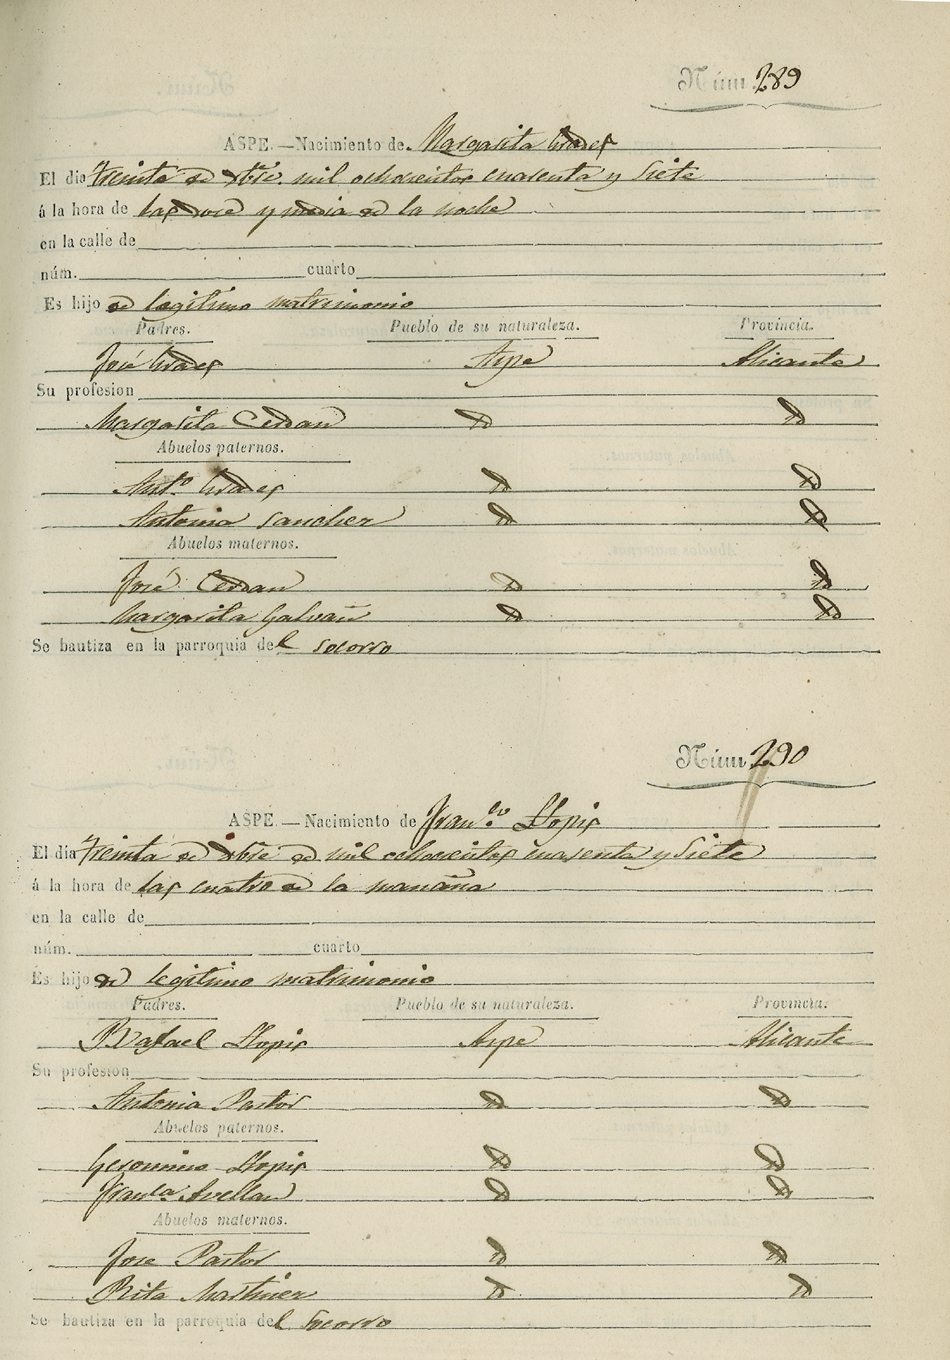 Núm 289
ASPE.—Nacimiento de Margarita
El dia treinta de mil ochocientos cuarenta y siete
á la hora de las doce y media de la noche
en la calle de
núm. cuarto
Es hijo de legitimo matrimonio
Padres. Pueblo de su naturaleza. Provincia.
José Aspe Alicante
Su profesion
Margarita Cerdan
Abuelos paternos.
Antº
Antonia Sanchez
Abuelos maternos.
José Cerdan
Margarita Galvañ
Se bautiza en la parroquia del Socorro
Núm 290
ASPE.—Nacimiento de Franco Llopis
El dia treinta de de mil ochocientos cuarenta y siete
á la hora de las cuatro de la manaña
en la calle de
núm. cuarto
Es hijo de legitimo matrimonio
Padres. Pueblo de su naturaleza. Provincia.
Rafael Llopis Aspe Alicante
Su profesion
Antonia Pastor
Abuelos paternos.
Geronimo Llopis
Franca Avellan
Abuelos maternos.
Jose Pastor
Rita Martinez
Se bautiza en la parroquia del Socorro